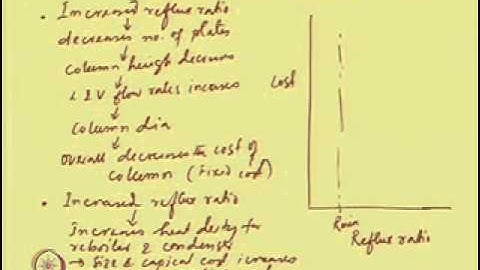 • Increased reflux ratio
decreases no. of plates
column heigh decreases
L & V flow rates increases
column dia
overall decreases the cost of
column (Fixed cost)
• Increased reflux ratio
Increases heat duty for
reboiler & condenser
→ Size & capical cost increases
Cost
Rmin
Reflux ratio